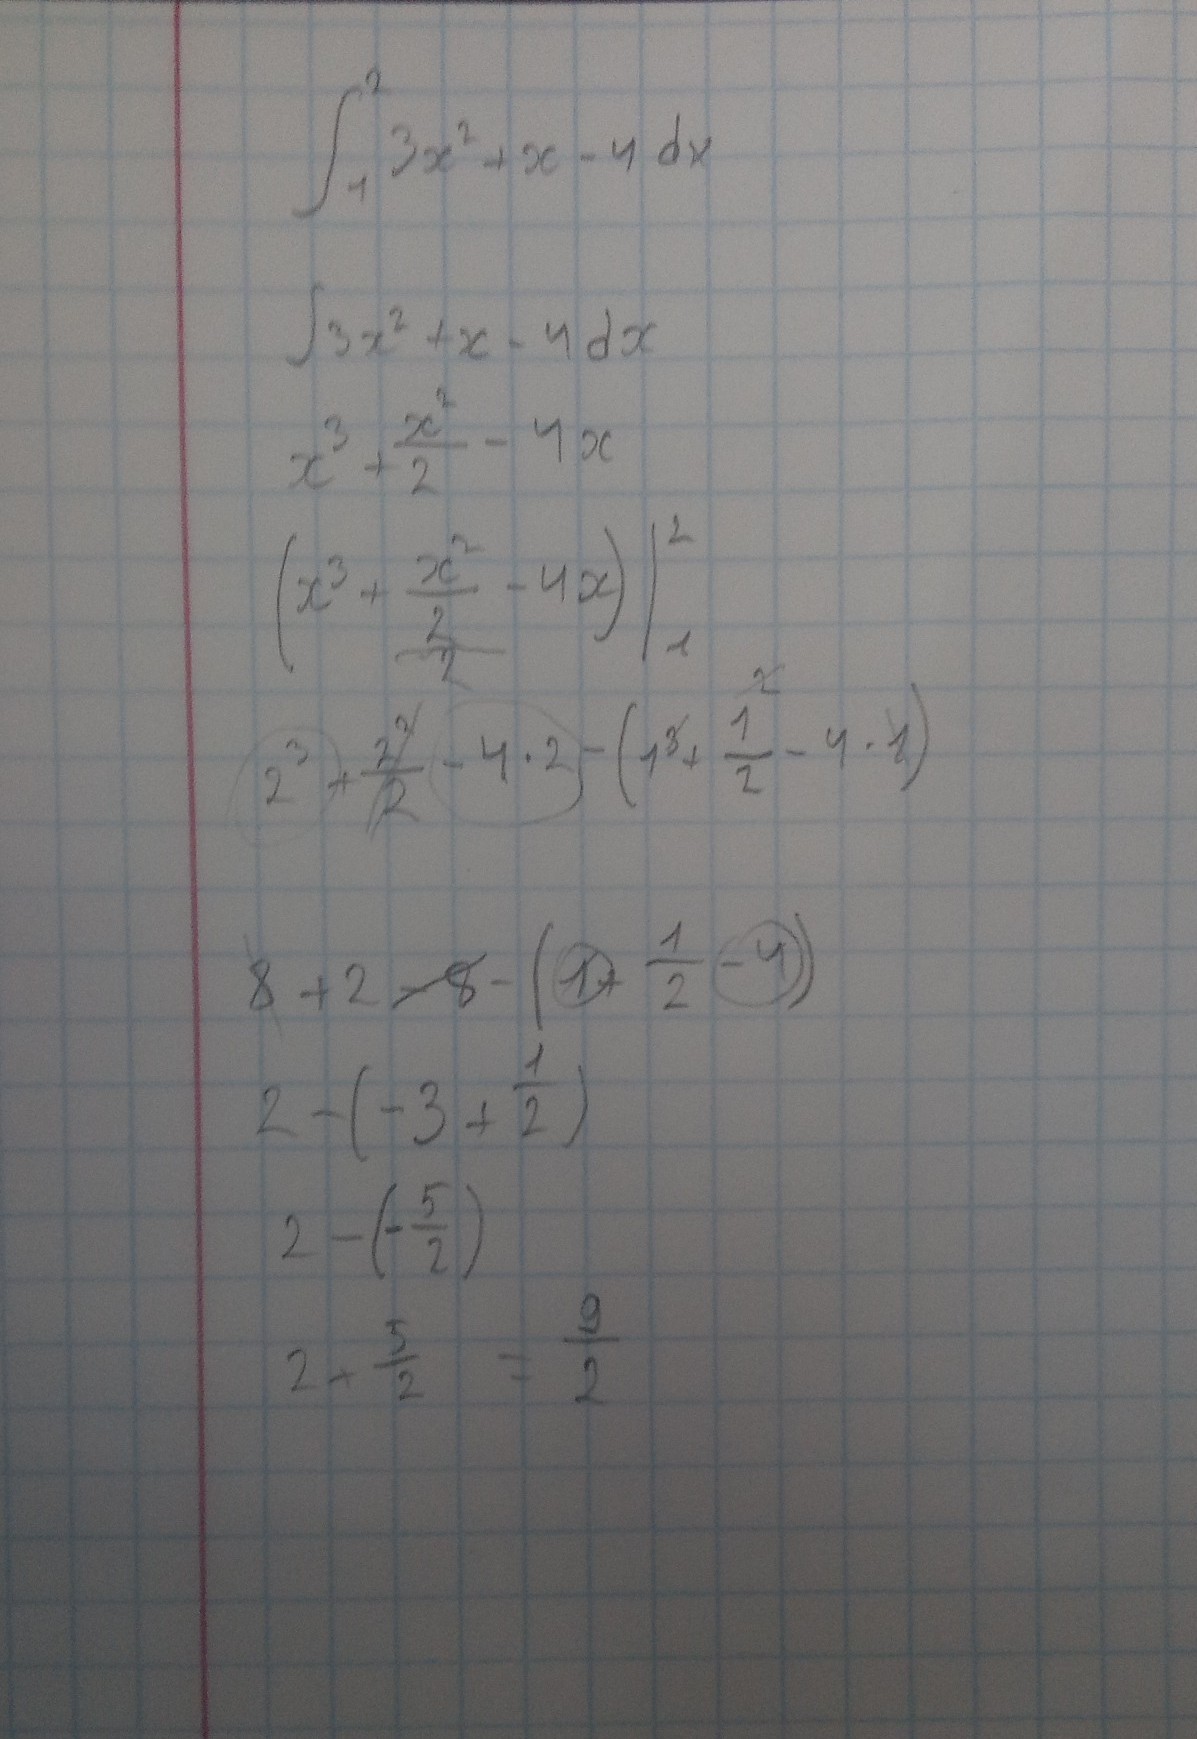 ∫₁² 3x² + x - 4 dx
∫ 3x² + x - 4 dx
x³ + x²/2 - 4x
(x³ + x²/2 - 4x) |₁²
2³ + 2²/2 - 4 · 2 - (1³ + 1²/2 - 4 · 1)
8 + 2 - 8 - (1 + 1/2 - 4)
2 - (-3 + 1/2)
2 - (-5/2)
2 + 5/2 = 9/2